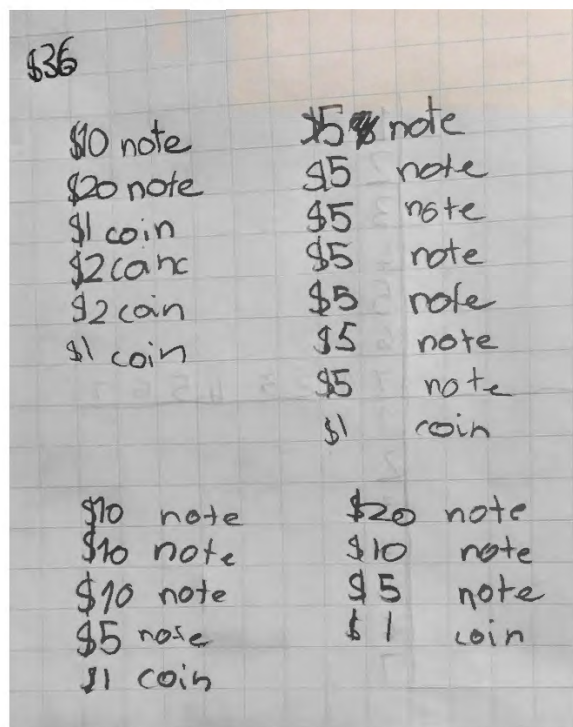 $36
$10 note
$20 note
$1 coin
$2 coinc
$2 coin
$1 coin
$5 note
$5 note
$5 note
$5 note
$5 note
$5 note
$5 note
$1 coin
$10 note
$10 note
$10 note
$5 note
$1 coin
$20 note
$10 note
$5 note
$1 coin